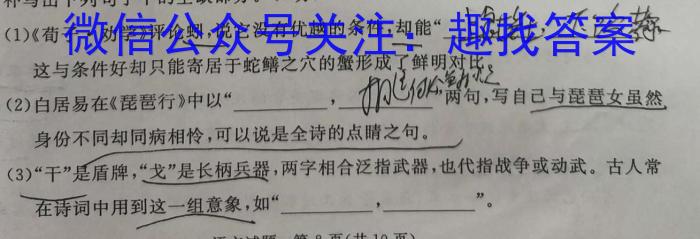 补写出下列句子中的空缺部分。
(1)《荀子·劝学》评论蚓，说它没有优越的条件，却能“
微信公众号关注：趣找答案
这与条件好却只能寄居于蛇鳝之穴的蟹形成了鲜明对比。
(2)白居易在《琵琶行》中以“________，________”两句，写自己与琵琶女虽然
身份不同却同病相怜，可以说是全诗的点睛之句。
(3)“干”是盾牌，“戈”是长柄兵器，两字相合泛指武器，也代指战争或动武。古人常
在诗词中用到这一组意象，如“________，________”。
第8页(共10页)